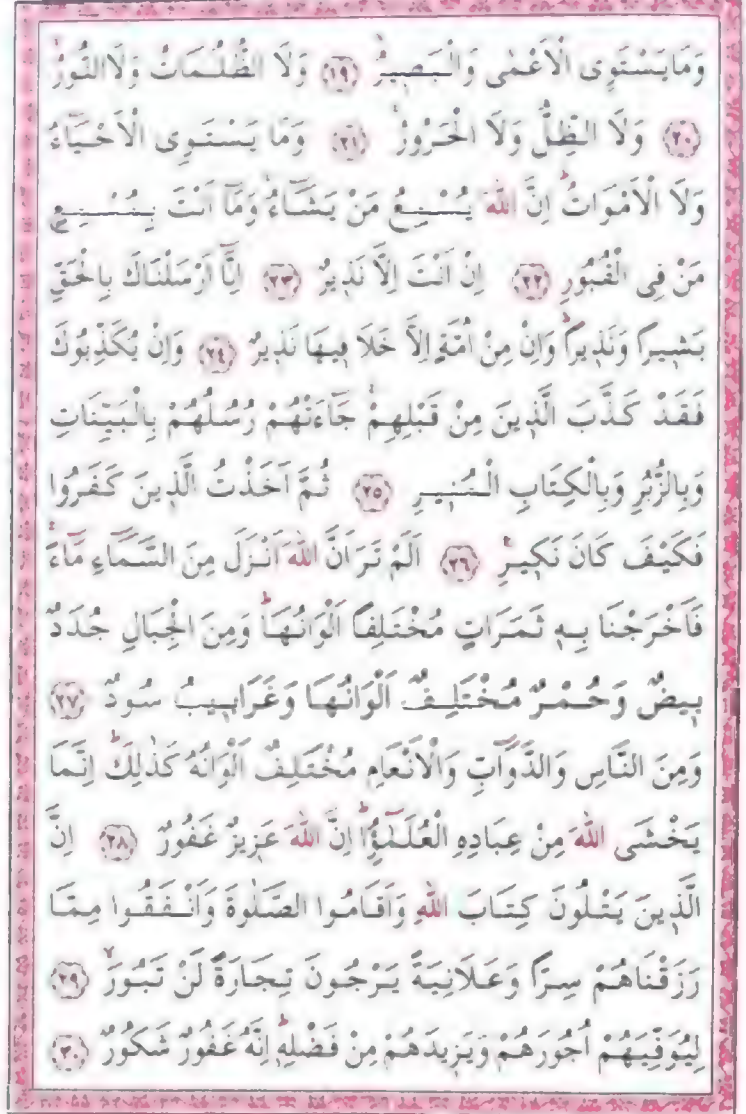 وَمَا يَسْتَوِى الْاَعْمٰى وَالْبَصٖيرُۙ ﴿١٩﴾ وَلَا الظُّلُمَاتُ وَلَا النُّورُۙ
﴿٢٠﴾ وَلَا الظِّلُّ وَلَا الْحَرُورُۚ ﴿٢١﴾ وَمَا يَسْتَوِى الْاَحْيَٓاءُ
وَلَا الْاَمْوَاتُؕ اِنَّ اللّٰهَ يُسْمِعُ مَنْ يَشَٓاءُۚ وَمَٓا اَنْتَ بِمُسْمِعٍ
مَنْ فِى الْقُبُورِ ﴿٢٢﴾ اِنْ اَنْتَ اِلَّا نَذٖيرٌ ﴿٢٣﴾ اِنَّٓا اَرْسَلْنَاكَ بِالْحَقِّ
بَشٖيرًا وَنَذٖيرًاؕ وَاِنْ مِنْ اُمَّةٍ اِلَّا خَلَا فٖيهَا نَذٖيرٌ ﴿٢٤﴾ وَاِنْ يُكَذِّبُوكَ
فَقَدْ كَذَّبَ الَّذٖينَ مِنْ قَبْلِهِمْۚ جَٓاءَتْهُمْ رُسُلُهُمْ بِالْبَيِّنَاتِ
وَبِالزُّبُرِ وَبِالْكِتَابِ الْمُنٖيرِ ﴿٢٥﴾ ثُمَّ اَخَذْتُ الَّذٖينَ كَفَرُوا
فَكَيْفَ كَانَ نَكٖيرِࣖ ﴿٢٦﴾ اَلَمْ تَرَ اَنَّ اللّٰهَ اَنْزَلَ مِنَ السَّمَٓاءِ مَٓاءًۚ
فَاَخْرَجْنَا بِهٖ ثَمَرَاتٍ مُخْتَلِفًا اَلْوَانُهَاؕ وَمِنَ الْجِبَالِ جُدَدٌ
بٖيضٌ وَحُمْرٌ مُخْتَلِفٌ اَلْوَانُهَا وَغَرَابٖيبُ سُودٌ ﴿٢٧﴾
وَمِنَ النَّاسِ وَالدَّوَٓابِّ وَالْاَنْعَامِ مُخْتَلِفٌ اَلْوَانُهُ كَذٰلِكَؕ اِنَّمَا
يَخْشَى اللّٰهَ مِنْ عِبَادِهِ الْعُلَمٰٓؤُاؕ اِنَّ اللّٰهَ عَزٖيزٌ غَفُورٌ ﴿٢٨﴾ اِنَّ
الَّذٖينَ يَتْلُونَ كِتَابَ اللّٰهِ وَاَقَامُوا الصَّلٰوةَ وَاَنْفَقُوا مِمَّا
رَزَقْنَاهُمْ سِرًّا وَعَلَانِيَةً يَرْجُونَ تِجَارَةً لَنْ تَبُورَۙ ﴿٢٩﴾
لِيُوَفِّيَهُمْ اُجُورَهُمْ وَيَزٖيدَهُمْ مِنْ فَضْلِهٖؕ اِنَّهُ غَفُورٌ شَكُورٌ ﴿٣٠﴾